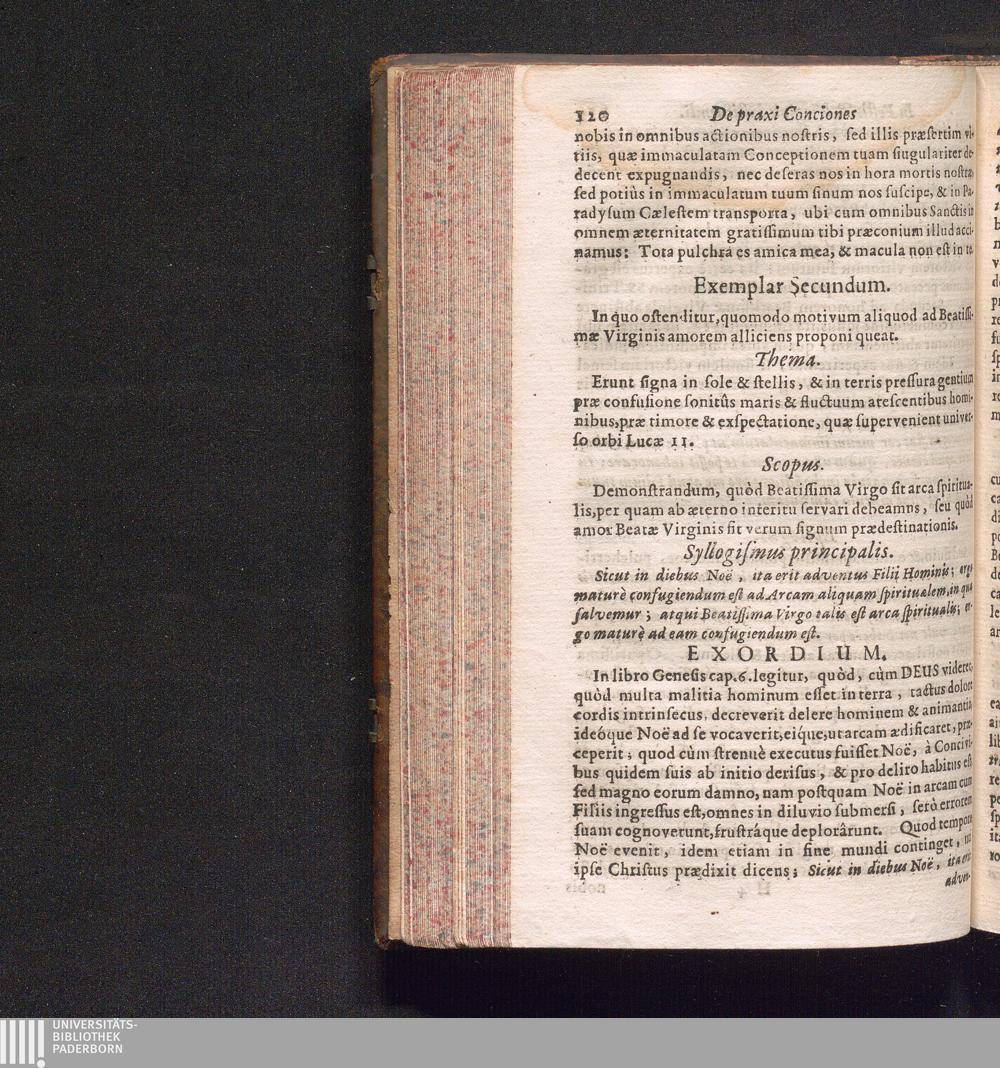 120 De praxi Conciones
nobis in omnibus actionibus nostris, sed illis præsertim vi-
tiis, quæ immaculatam Conceptionem tuam siugulariter de-
decent expugnandis, nec deseras nos in hora mortis nostræ,
sed potiùs in immaculatum tuum sinum nos suscipe, & in Pa-
radysum Cælestem transporta, ubi cum omnibus Sanctis in
omnem æternitatem gratissimum tibi præconium illud acci-
namus: Tota pulchra es amica mea, & macula non est in te.
Exemplar Secundum.
In quo ostenditur, quomodo motivum aliquod ad Beatissi-
mæ Virginis amorem alliciens proponi queat.
Thema.
Erunt signa in sole & stellis, & in terris pressura gentium
præ confusione sonitûs maris & fluctuum arescentibus homi-
nibus, præ timore & exspectatione, quæ supervenient univer-
so orbi Lucæ 11.
Scopus.
Demonstrandum, quòd Beatissima Virgo sit arca spiritua-
lis, per quam ab æterno interitu servari debeamns, seu quòd
amor Beatæ Virginis sit verum signum prædestinationis.
Syllogismus principalis.
Sicut in diebus Noë, ita erit adventus Filii Hominis; ergo
maturè confugiendum est ad Arcam aliquam spiritualem, in qua
salvemur; atqui Beatissima Virgo talis est arca spiritualis; er-
go maturè ad eam confugiendum est.
EXORDIUM.
In libro Genesis cap. 6. legitur, quòd, cùm DEUS videret,
quòd multa malitia hominum esset in terra, tactus dolore
cordis intrinsecus, decreverit delere hominem & animantia,
ideóque Noë ad se vocaverit, eíque, ut arcam ædificaret, præ-
ceperit; quod cùm strenuè executus fuisset Noë, à Concivi-
bus quidem suis ab initio derisus, & pro deliro habitus est
sed magno eorum damno, nam postquam Noë in arcam cum
Filiis ingressus est, omnes in diluvio submersi, serò errorem
suam cognoverunt, frustráque deplorârunt. Quod tempore
Noë evenit, idem etiam in fine mundi continget, ut
ipse Christus prædixit dicens; Sicut in diebus Noë, ita erit
adven-
UNIVERSITÄTS-
BIBLIOTHEK
PADERBORN